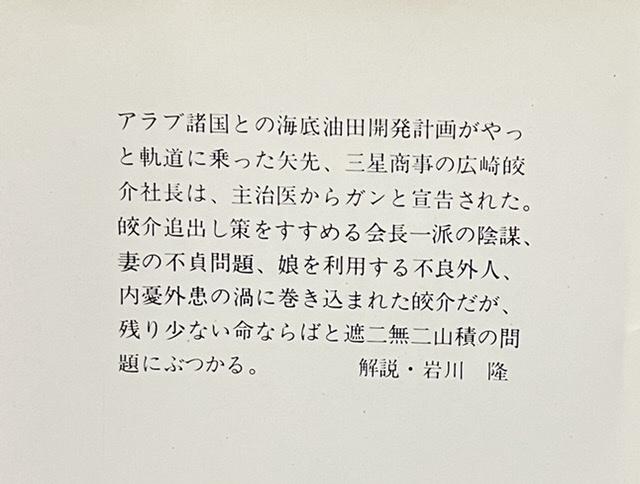 アラブ諸国との海底油田開発計画がやっ
と軌道に乗った矢先、三星商事の広崎皎
介社長は、主治医からガンと宣告された。
皎介追出し策をすすめる会長一派の陰謀、
妻の不貞問題、娘を利用する不良外人、
内憂外患の渦に巻き込まれた皎介だが、
残り少ない命ならばと遮二無二山積の問
題にぶつかる。　　　　解説・岩川　隆